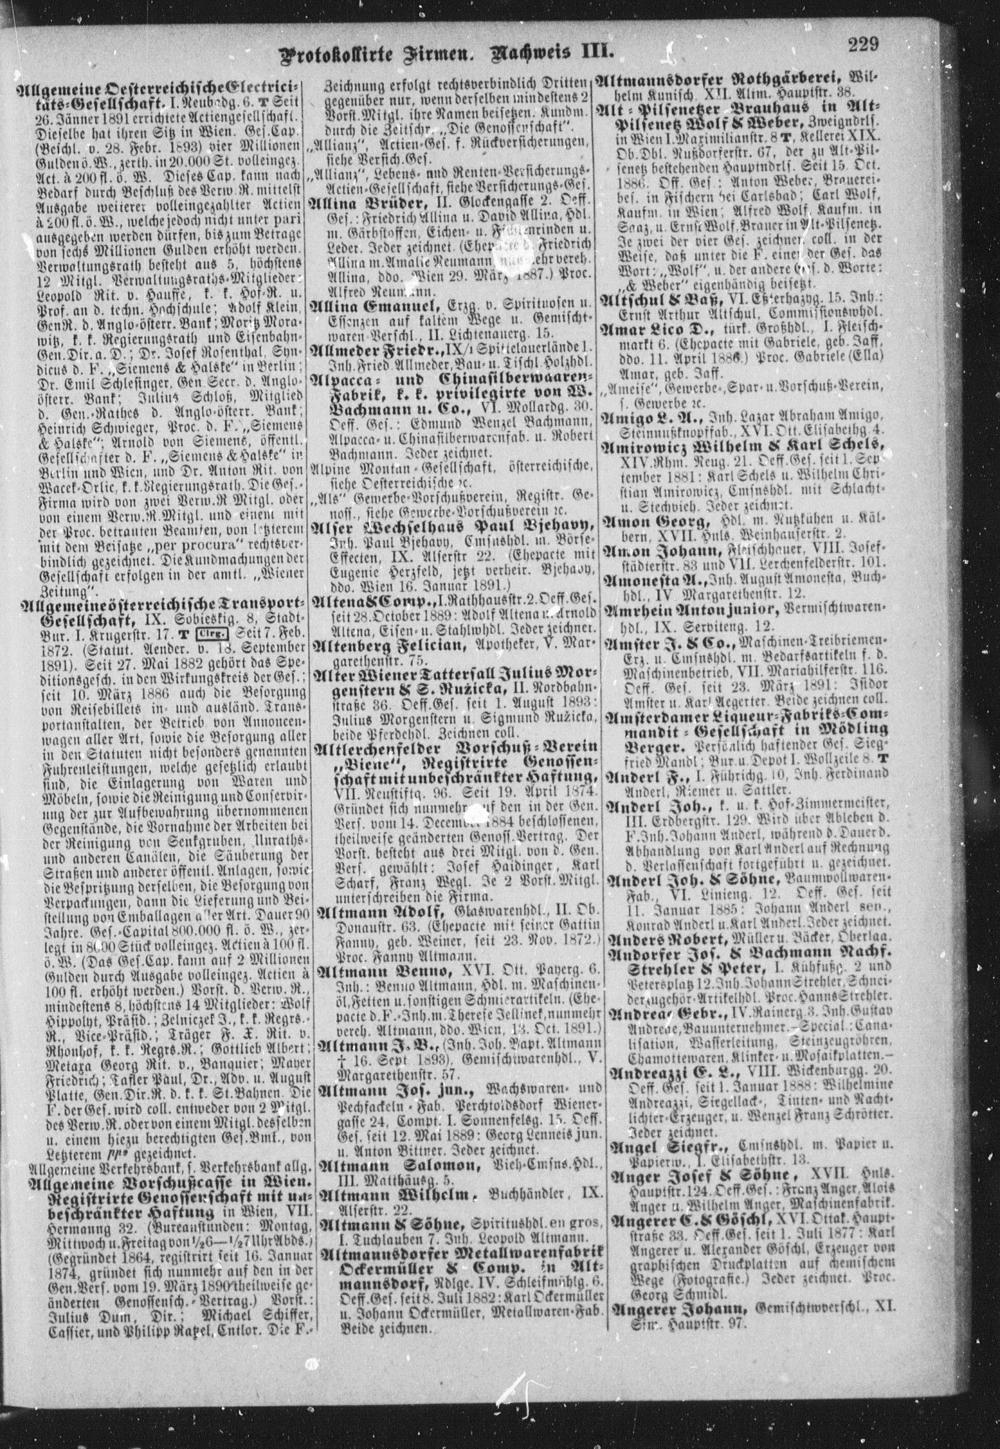 Protokollirte Firmen. Nachweis III.
229
Allgemeine Oesterreichische Electrici-
täts-Gesellschaft. I. Neubadg. 6. T Seit
26. Jänner 1891 errichtete Actiengesellschaft.
Dieselbe hat ihren Sitz in Wien. Ges. Cap.
(Beschl. v. 28. Febr. 1893) vier Millionen
Gulden ö. W., zerth. in 20.000 St. volleingez.
Act. à 200 fl. ö. W. Dieses Cap. kann nach
Bedarf durch Beschluß des Verw. R. mittelst
Ausgabe weiterer volleingezahlter Actien
à 200 fl. ö. W., welche jedoch nicht unter pari
ausgegeben werden dürfen, bis zum Betrage
von sechs Millionen Gulden erhöht werden.
Verwaltungsrath besteht aus 5, höchstens
12 Mitgl. Verwaltungsraths-Mitglieder:
Leopold Rit. v. Hauffe, k. k. Hof-R. u.
Prof. an d. techn. Hochschule; Adolf Klein,
Gen R. d. Anglo-österr. Bank; Moritz Mora-
witz, k. k. Regierungsrath und Eisenbahn-
Gen. Dir. a. D.; Dr. Josef Rosenthal, Syn-
dicus d. F. „Siemens & Halske" in Berlin;
Dr. Emil Schlesinger, Gen Secr. d. Anglo-
österr. Bank; Julius Schloß, Mitglied
d. Gen.-Rathes d. Anglo-österr. Bank;
Heinrich Schwieger, Proc. d. F. „Siemens
& Halske"; Arnold von Siemens, öffentl.
Gesellschafter d. F. „Siemens & Halske" in
Berlin und Wien, und Dr. Anton Rit. von
Wacek-Orlic, k. k. Regierungsrath. Die Ges.-
Firma wird von zwei Verw. R Mitgl. oder
von einem Verw. R. Mitgl. und einem mit
der Proc. betrauten Beamten, von letzterem
mit dem Beisatze „per procura" rechtsver-
bindlich gezeichnet. Die Kundmachungen der
Gesellschaft erfolgen in der amtl. „Wiener
Zeitung".
Allgemeine österreichische Transport-
Gesellschaft, IX. Sobieskig. 8, Stadt-
Bur. I. Krugerstr. 17. T Clrg. Seit 7. Feb.
1872. (Statut. Aender. v. 18. September
1891). Seit 27. Mai 1882 gehört das Spe-
ditionsgesch. in den Wirkungskreis der Ges.;
seit 10. März 1886 auch die Besorgung
von Reisebillets in- und ausländ. Trans-
portanstalten, der Betrieb von Annoncen-
wagen aller Art, sowie die Besorgung aller
in den Statuten nicht besonders genannten
Fuhrenleistungen, welche gesetzlich erlaubt
sind, die Einlagerung von Waren und
Möbeln, sowie die Reinigung und Conservir-
ung der zur Aufbewahrung übernommenen
Gegenstände, die Vornahme der Arbeiten bei
der Reinigung von Senkgruben, Unraths-
und anderen Canälen, die Säuberung der
Straßen und anderer öffentl. Anlagen, sowie
die Bespritzung derselben, die Besorgung von
Verpackungen, dann die Lieferung und Bei-
stellung von Emballagen aller Art. Dauer 90
Jahre. Ges.-Capital 800.000 fl. ö. W., zer-
legt in 8000 Stück volleingez. Actien à 100 fl.
ö. W. (Das Ges. Cap. kann auf 2 Millionen
Gulden durch Ausgabe volleingez. Actien à
100 fl. erhöht werden.) Vorst. d. Verw. R.,
mindestens 8, höchstens 14 Mitglieder: Wolf
Hippolyt, Präsid.; Zelniczek J., k. k. Regrs.-
R., Vice-Präsid.; Träger F. X. Rit. v.
Rhonhof, k. k. Regrs. R.; Gottlieb Albert;
Metaxa Georg Rit. v., Banquier; Mayer
Friedrich; Taßler Paul, Dr., Adv. u. August
Platte, Gen. Dir. R. d. k. k. St. Bahnen. Die
F. der Ges. wird coll. entweder von 2 Mitgl.
des Verw. R. oder von einem Mitgl. desselben
u. einem hiezu berechtigten Ges. Bmt., von
Letzterem ppa gezeichnet.
Allgemeine Verkehrsbank, s. Verkehrsbank allg.
Allgemeine Vorschußcasse in Wien.
Registrirte Genossenschaft mit un-
beschränkter Haftung in Wien, VII.
Hermanng 32. (Bureaustunden: Montag,
Mittwoch u. Freitag von ½6—½7 Uhr Abds.)
(Gegründet 1864, registrirt seit 16. Januar
1874, gründet sich nunmehr auf den in der
Gen. Vers. vom 19. März 1890 theilweise ge-
änderten Genossensch.-Vertrag.) Vorst.:
Julius Dum, Dir.; Michael Schiffer,
Cassier, und Philipp Ratzel, Cntlor. Die F.-
Zeichnung erfolgt rechtsverbindlich Dritten
gegenüber nur, wenn derselben mindestens 2
Vorst. Mitgl. ihre Namen beisetzen. Kundm.
durch die Zeitschr. „Die Genossenschaft".
„Allianz", Actien-Ges. f. Rückversicherungen,
siehe Versich. Ges.
„Allianz", Lebens- und Renten-Versicherungs-
Actien-Gesellschaft, siehe Versicherungs-Ges.
Allina Brüder, II. Glockengasse 2. Oeff.
Ges.: Friedrich Allina u. David Allina, Hdl.
m. Gärbstoffen, Eichen- u. Fichtenrinden u.
Leder. Jeder zeichnet. (Ehepacte d. Friedrich
Allina m. Amalie Neumann nunmehr vereh.
Allina, ddo. Wien 29. März 1887.) Proc.
Alfred Neumann.
Allina Emanuel, Erzg. v. Spirituosen u.
Essenzen auf kaltem Wege u. Gemischt-
waren-Verschl., II. Lichtenauerg. 15.
Allmeder Friedr., IX/1 Spittelauerlände 1.
Inh. Fried. Allmeder, Bau- u. Tischl. Holzhdl.
Alpacca- und Chinasilberwaaren-
Fabrik, k. k. privilegirte von W.
Bachmann u. Co., VI. Mollardg. 30.
Oeff. Ges.: Edmund Wenzel Bachmann,
Alpacca- u. Chinasilberwarenfab. u. Robert
Bachmann. Jeder zeichnet.
Alpine Montan-Gesellschaft, österreichische,
siehe Oesterreichische ꝛc.
„Als" Gewerbe-Vorschußverein, Registr. Ge-
noss., siehe Gewerbe-Vorschußverein ꝛc.
Alser Wechselhaus Paul Bjehavy,
Inh. Paul Bjehavy, Cmsnshdl. m. Börse-
Effecten, IX. Alserstr 22. (Ehepacte mit
Eugenie Herzfeld, jetzt verheir. Bjehavy,
ddo. Wien 16. Januar 1891.)
Altena & Comp., I. Rathhausstr. 2. Oeff. Ges.
seit 28. October 1889: Adolf Altena u. Arnold
Altena, Eisen- u. Stahlwhdl. Jeder zeichnet.
Altenberg Felician, Apotheker, V. Mar-
garethenstr. 75.
Alter Wiener Tattersall Julius Mor-
genstern & S. Ružicka, II. Nordbahn-
straße 36. Oeff. Ges. seit 1. August 1893:
Julius Morgenstern u. Sigmund Ružicka,
beide Pferdehdl. Zeichnen coll.
Altlerchenfelder Vorschuß-Verein
„Biene", Registrirte Genossen-
schaft mit unbeschränkter Haftung,
VII. Neustiftg. 96. Seit 19. April 1874.
Gründet sich nunmehr auf den in der Gen.
Vers. vom 14. December 1884 beschlossenen,
theilweise geänderten Genoss. Vertrag. Der
Vorst. besteht aus drei Mitgl. von d. Gen.
Vers. gewählt: Josef Haidinger, Karl
Scharf, Franz Wegl. Je 2 Vorst. Mitgl.
unterschreiben die Firma.
Altmann Adolf, Glaswarenhdl., II. Ob.
Donaustr. 63. (Ehepacte mit seiner Gattin
Fanny, geb. Weiner, seit 23. Nov. 1872.)
Proc. Fanny Altmann.
Altmann Benno, XVI. Ott. Payerg. 6.
Inh.: Benno Altmann, Hdl. m. Maschinen-
öl, Fetten u. sonstigen Schmierartikeln. (Ehe-
pacte d. F.-Inh. m. Therese Jellinek, nunmehr
vereh. Altmann, ddo. Wien, 13. Oct. 1891.)
Altmann J. B., (Inh. Joh. Bapt. Altmann
† 16. Sept. 1893), Gemischtwarenhdl., V.
Margarethenstr. 57.
Altmann Jos. jun., Wachswaren- und
Pechfackeln-Fab. Perchtoldsdorf Wiener-
gasse 24, Compt. I. Sonnenfelsg. 15. Oeff.
Ges. seit 12. Mai 1889: Georg Lenneis jun.
u. Anton Bittner. Jeder zeichnet.
Altmann Salomon, Vieh-Cmsns. Hdl.,
III. Matthäusg. 5.
Altmann Wilhelm, Buchhändler, IX.
Alserstr. 22.
Altmann & Söhne, Spiritushdl. en gros,
I. Tuchlauben 7. Inh. Leopold Altmann.
Altmannsdorfer Metallwarenfabrik
Ockermüller & Comp. in Alt-
mannsdorf, Ndlge. IV. Schleifmühlg. 6.
Oeff. Ges. seit 8. Juli 1882: Karl Ockermüller
u. Johann Ockermüller, Metallwaren-Fab.
Beide zeichnen.
Altmannsdorfer Rothgärberei, Wil-
helm Kunisch, XII. Altm. Hauptstr. 38.
Alt-Pilsenetzer Brauhaus in Alt-
Pilsenetz Wolf & Weber, Zweigndrls.
in Wien I. Maximilianstr. 8 T, Kellerei XIX.
Ob. Dbl. Nußdorferstr. 67, der zu Alt-Pil-
senetz bestehenden Hauptndrls. Seit 15. Oct.
1886. Off. Ges.: Anton Weber, Brauerei-
bes. in Fischern bei Carlsbad; Carl Wolf,
Kaufm. in Wien; Alfred Wolf, Kaufm. in
Saaz, u. Ernst Wolf, Brauer in Alt-Pilsenetz.
Je zwei der vier Ges. zeichnen coll. in der
Weise, daß unter die F. einer der Ges. das
Wort: „Wolf", u. der andere Ges. d. Worte:
„& Weber" eigenhändig beisetzt.
Altschul & Baß, VI. Eßterhazyg. 15. Inh.:
Ernst Arthur Altschul, Commissionswhdl.
Amar Lico D., türk. Großhdl., I. Fleisch-
markt 6. (Ehepacte mit Gabriele, geb. Jaff,
ddo. 11. April 1886.) Proc. Gabriele (Ella)
Amar, geb. Jaff.
„Ameise", Gewerbe-, Spar- u. Vorschuß-Verein,
s. Gewerbe ꝛc.
Amigo L. A., Inh. Lazar Abraham Amigo,
Steinnußknopffab., XVI. Ott. Elisabethg. 4.
Amirowicz Wilhelm & Karl Schels,
XIV. Rhm. Neug. 21. Oeff. Ges. seit 1. Sep-
tember 1881: Karl Schels u. Wilhelm Chri-
stian Amirowicz, Cmsnshdl. mit Schlacht-
u. Stechvieh. Jeder zeichnet.
Amon Georg, Hdl. m. Nutzkühen u. Käl-
bern, XVII. Hnls. Weinhauserstr. 2.
Amon Johann, Fleischhauer, VIII. Josef-
städterstr. 83 und VII. Lerchenfelderstr. 101.
Amonesta A., Inh. August Amonesta, Buch-
hdl., IV. Margarethenstr. 12.
Amrhein Anton junior, Vermischtwaren-
hdl., IX. Serviteng. 12.
Amster J. & Co., Maschinen-Treibriemen-
Erz. u. Cmsnshdl. m. Bedarfsartikeln f. d.
Maschinenbetrieb, VII. Mariahilferstr. 116.
Oeff. Ges. seit 23. März 1891: Isidor
Amster u. Karl Aegerter. Beide zeichnen coll.
Amsterdamer Liqueur-Fabriks-Com-
mandit-Gesellschaft in Mödling
Berger. Persönlich haftender Ges. Sieg-
fried Mandl; Bur. u. Depot I. Wollzeile 8. T
Anderl F., I. Führichg. 10, Inh. Ferdinand
Anderl, Riemer u. Sattler.
Anderl Joh., k. u. k. Hof-Zimmermeister,
III. Erdbergstr. 129. Wird über Ableben d.
F. Inh. Johann Anderl, während d. Dauer d.
Abhandlung von Karl Anderl auf Rechnung
d. Verlassenschaft fortgeführt u. gezeichnet.
Anderl Joh. & Söhne, Baumwollwaren-
Fab., VI. Linieng. 12. Oeff. Ges. seit
11. Januar 1885: Johann Anderl sen.,
Konrad Anderl u. Karl Anderl. Jeder zeichnet.
Anders Robert, Müller u. Bäcker, Oberlaa.
Andorfer Jos. & Bachmann Nachf.
Strehler & Peter, I. Kühfußg. 2 und
Petersplatz 12. Inh. Johann Strehler, Schnei-
derzugehör-Artikelhdl. Proc. Hanns Strehler.
Andreae Gebr., IV. Rainerg. 3. Inh. Gustav
Andreae, Bauunternehmer.—Special.: Cana-
lisation, Wasserleitung, Steinzeugröhren,
Chamottewaren, Klinker- u. Mosaikplatten.—
Andreazzi E. L., VIII. Wickenburgg. 20.
Oeff. Ges. seit 1. Januar 1888: Wilhelmine
Andreazzi, Siegellack-, Tinten- und Nacht-
lichter-Erzeuger, u. Wenzel Franz Schrötter.
Jeder zeichnet.
Angel Siegfr., Cmsnshdl. m. Papier u.
Papierw., I. Elisabethstr. 13.
Anger Josef & Söhne, XVII. Hnls.
Hauptstr. 124. Oeff. Ges.: Franz Anger, Alois
Anger u. Wilhelm Anger, Maschinenfabrik.
Angerer C. & Göschl, XVI. Ottak. Haupt-
straße 33. Oeff. Ges. seit 1. Juli 1877: Karl
Angerer u. Alexander Göschl, Erzeuger von
graphischen Druckplatten auf chemischem
Wege (Fotografie.) Jeder zeichnet. Proc.
Georg Schmidl.
Angerer Johann, Gemischtwverschl., XI.
Sim. Hauptstr. 97.